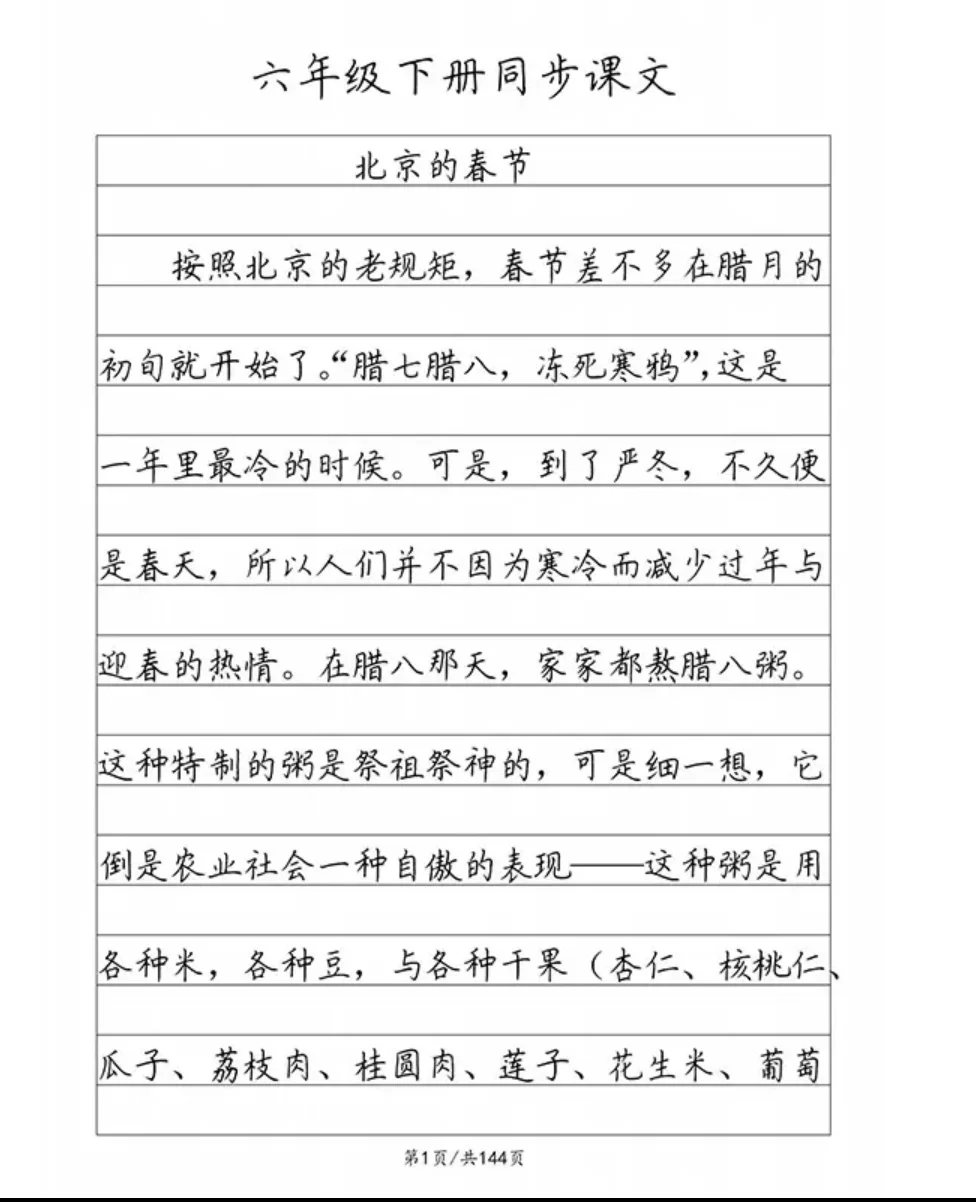 六年级下册同步课文
北京的春节
按照北京的老规矩，春节差不多在腊月的
初旬就开始了。“腊七腊八，冻死寒鸦”，这是
一年里最冷的时候。可是，到了严冬，不久便
是春天，所以人们并不因为寒冷而减少过年与
迎春的热情。在腊八那天，家家都熬腊八粥。
这种特制的粥是祭祖祭神的，可是细一想，它
倒是农业社会一种自傲的表现——这种粥是用
各种米，各种豆，与各种干果（杏仁、核桃仁、
瓜子、荔枝肉、桂圆肉、莲子、花生米、葡萄
第1页/共144页